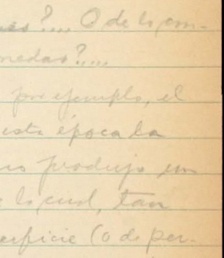 nes?.... O de la con-
nedas?....
por ejemplo, el
esta época la
produjo en
lo cual, tan
erficie (o de per-